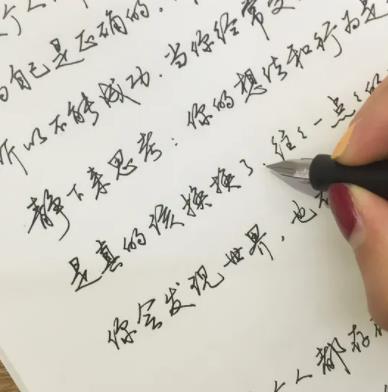 自己是正确的.
所以不能成功.当你经常
静下来思考:你的想法和行为是
是真的该换换了.往往一点点的
你会发现世界,也
人都存